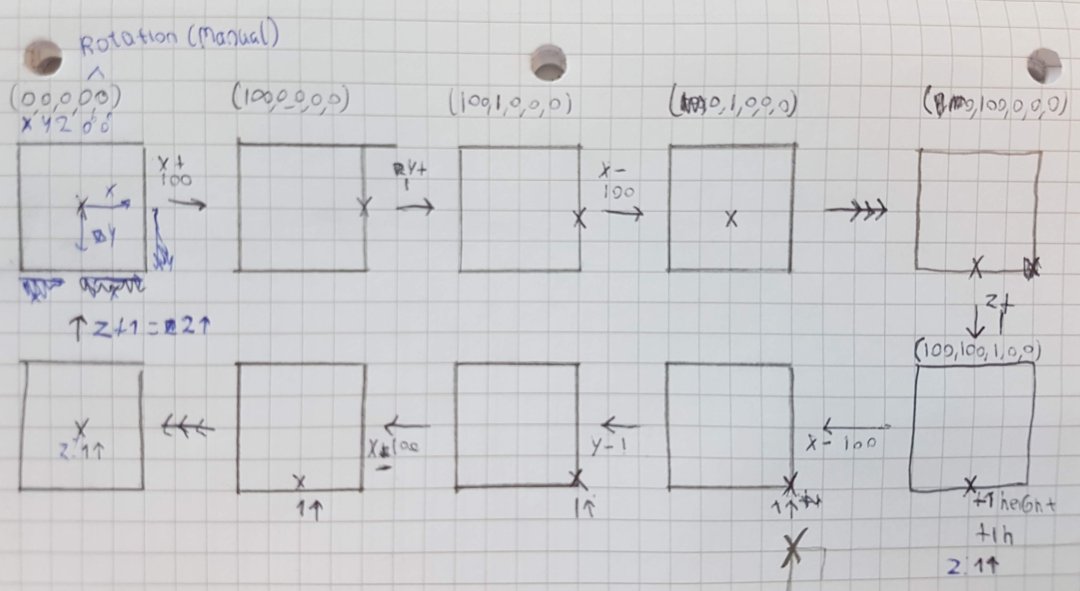 Rotation (Manual)
(0,0,0,0,0)
X Y Z 0 0
(100,0,0,0,0)
(100,1,0,0,0)
0,1,0,0,0)
0,100,0,0,0)
X+
100
Y+
1
X-
100
X
X
Y
X
X
X
X
X
Z+
1
↑ Z+1 = 2↑
(100,100,1,0,0)
X
Z:1↑
X-100
X
1↑
Y-1
X
1↑
X- 100
X
1↑
X
X
+1 height
+1h
Z:1↑